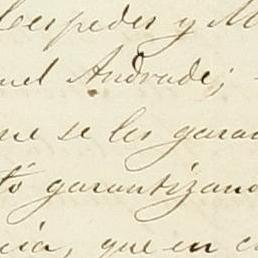 Cespedes y M
uel Andrade;
ue se les garan
tó garantizand
cia, que en c